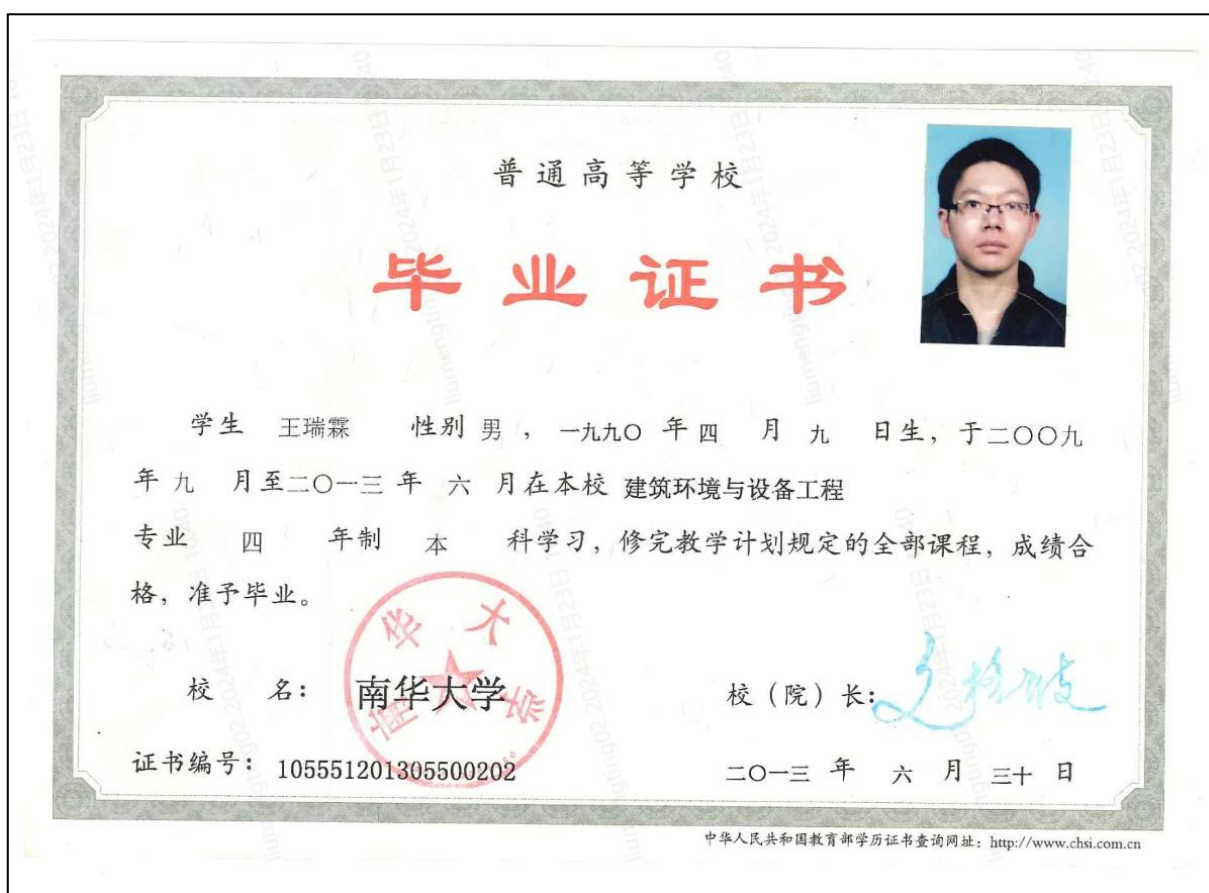 普通高等学校
毕业证书
学生 王瑞霖 性别 男 ，一九九〇 年 四 月 九 日生，于二〇〇九
年 九 月至二〇一三 年 六 月在本校 建筑环境与设备工程
专业 四 年制 本 科学习，修完教学计划规定的全部课程，成绩合
格，准予毕业。
南华大学
校 名： 南华大学 校（院）长：
证书编号： 105551201305500202 二〇一三 年 六 月 三十 日
中华人民共和国教育部学历证书查询网址：http://www.chsi.com.cn